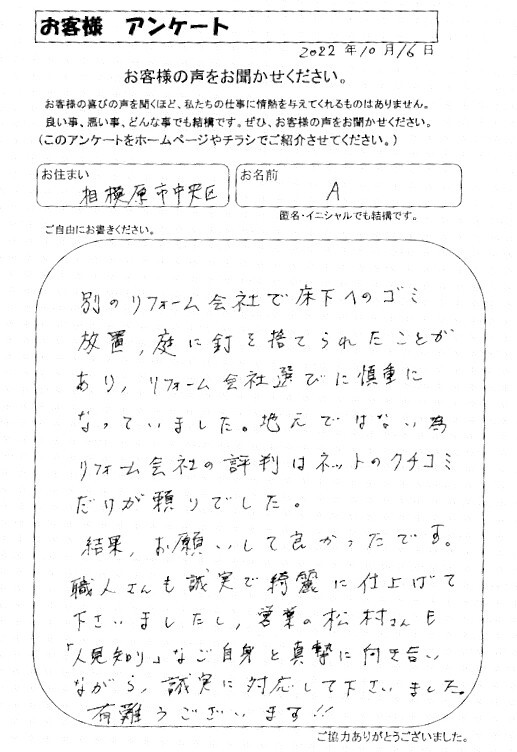 お客様　アンケート
2022年10月16日
お客様の声をお聞かせください。
お客様の喜びの声を聞くほど、私たちの仕事に情熱を与えてくれるものはありません。
良い事、悪い事、どんな事でも結構です。ぜひ、お客様の声をお聞かせください。
（このアンケートをホームページやチラシでご紹介させてください。）
お住まい
相模原市中央区
お名前
A
匿名・イニシャルでも結構です。
ご自由にお書きください。
別のリフォーム会社で床下へのゴミ
放置，庭に釘を捨てられたことが
あり，リフォーム会社選びに慎重に
なっていました。地元ではない為
リフォーム会社の評判はネットのクチコミ
だけが頼りでした。
結果，お願いして良かったです。
職人さんも誠実で綺麗に仕上げて
下さいましたし，営業の松村さんも
「人見知り」なご自身と真摯に向き合い
ながら，誠実に対応して下さいました。
有難うございます!!
ご協力ありがとうございました。